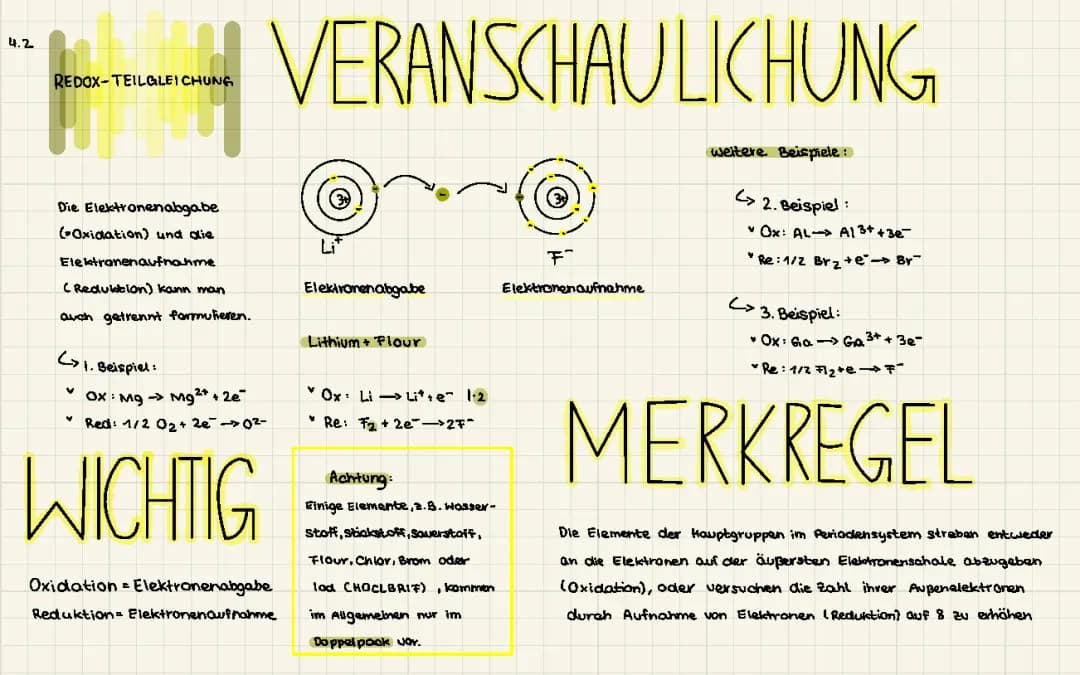 4.2
REDOX-TEILGLEICHUNG
VERANSCHAULICHUNG
Die Elektronenabgabe
(=Oxidation) und die
Elektronenaufnahme
(Reduktion) kann man
auch getrennt formulieren.
↪ 1. Beispiel:
Ox: Mg → Mg²⁺ + 2e⁻
Red: 1/2 O₂ + 2e⁻ → O²⁻
3+
Li⁺
Elektronenabgabe
3+
F⁻
Elektronenaufnahme
Lithium + Flour
Ox: Li → Li⁺ + e⁻ |·2
Re: F₂ + 2e⁻ → 2F⁻
weitere Beispiele:
↪ 2. Beispiel:
Ox: AL → Al³⁺ + 3e⁻
Re: 1/2 Br₂ + e⁻ → Br⁻
↪ 3. Beispiel:
Ox: Ga → Ga³⁺ + 3e⁻
Re: 1/2 Fl₂ + e → F⁻
WICHTIG
Oxidation = Elektronenabgabe
Reduktion = Elektronenaufnahme
Achtung:
Einige Elemente, z.B. Wasser-
stoff, Stickstoff, Sauerstoff,
Flour, Chlor, Brom oder
Iod (HOCLBRIF), kommen
im Allgemeinen nur im
Doppelpack vor.
MERKREGEL
Die Elemente der Hauptgruppen im Periodensystem streben entweder
an die Elektronen auf der äußersten Elektronenschale abzugeben
(Oxidation), oder versuchen die Zahl ihrer Außenelektronen
durch Aufnahme von Elektronen (Reduktion) auf 8 zu erhöhen